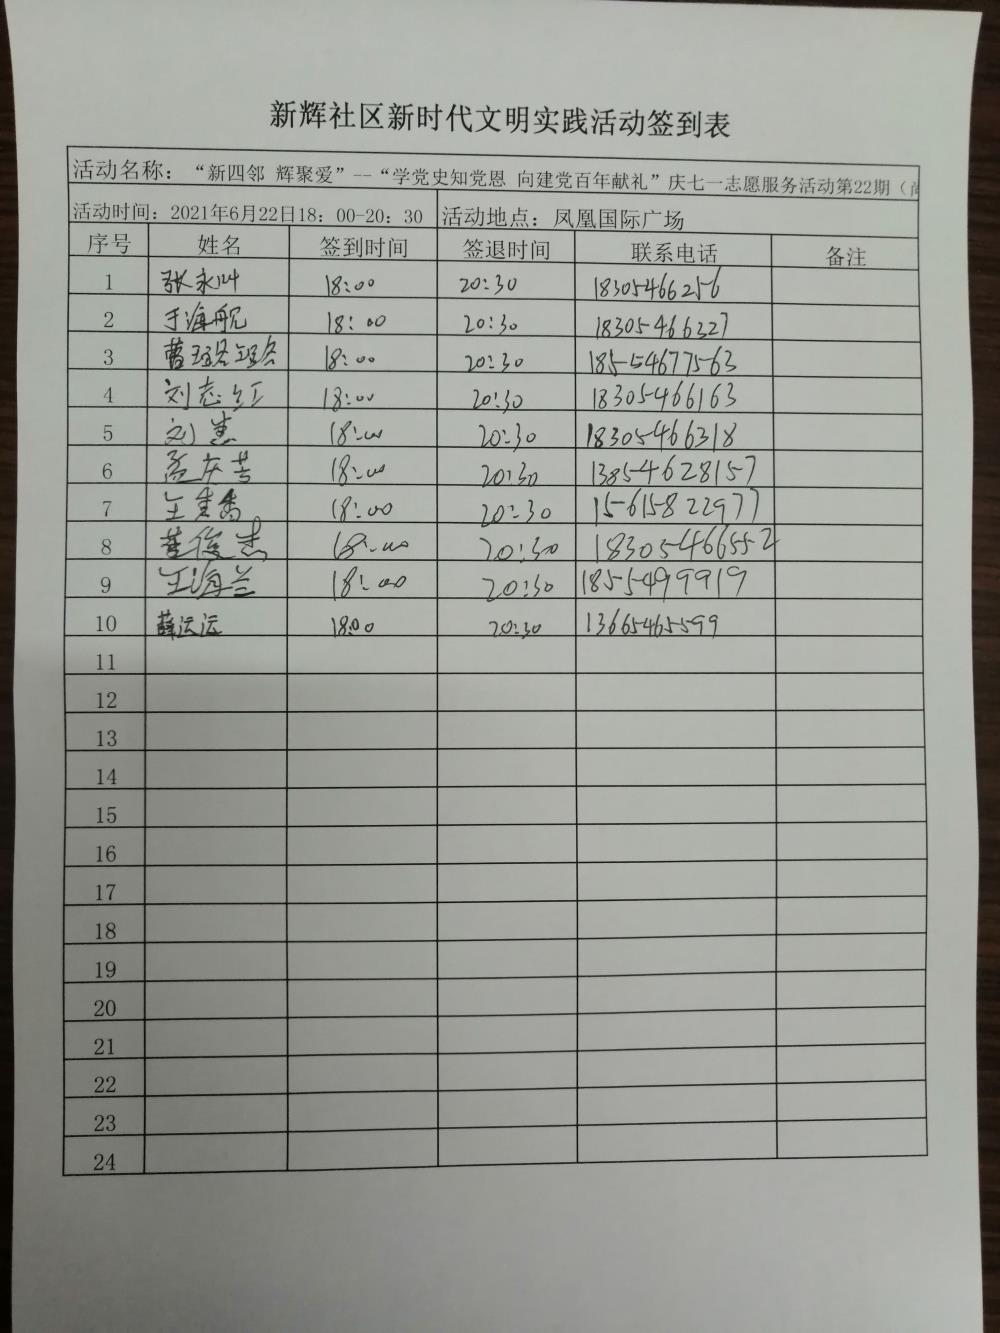 新辉社区新时代文明实践活动签到表
活动名称：“新四邻 辉聚爱”--“学党史知党恩 向建党百年献礼”庆七一志愿服务活动第22期（
活动时间：2021年6月22日18：00-20：30 活动地点：凤凰国际广场
序号 姓名 签到时间 签退时间 联系电话 备注
1 张永叫 18:00 20:30 18305466256
2 于海舰 18:00 20:30 18305466327
3 曹 18:00 20:30 18554677563
4 刘志红 18:00 20:30 18305466163
5 刘 18:00 20:30 18305466318
6 孟庆芳 18:00 20:30 13854628157
7 王秀香 18:00 20:30 15615822977
8 俊杰 18:00 20:30 18305466552
9 王海兰 18:00 20:30 1855499919
10 薛运运 18:00 20:30 13665465599
11
12
13
14
15
16
17
18
19
20
21
22
23
24